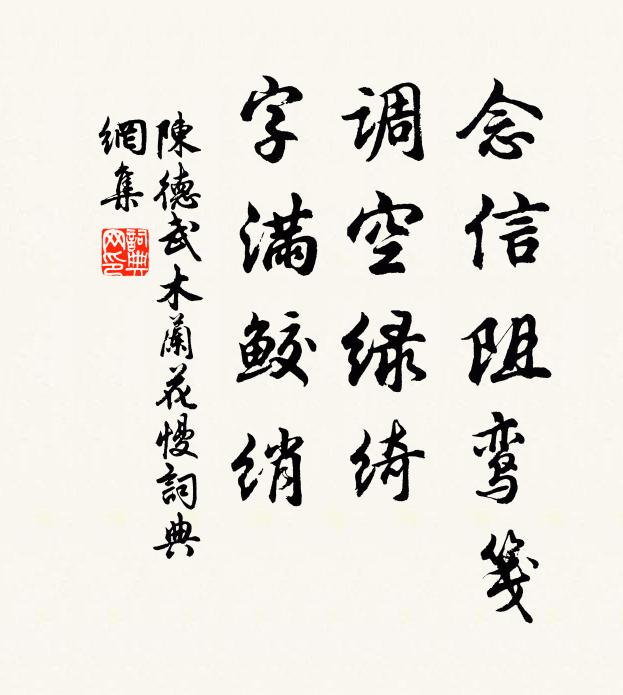 念信阻鸾笺
调空绿绮
字满鲛绡
陳德武木蘭花慢詞典
網集
詞典
网印